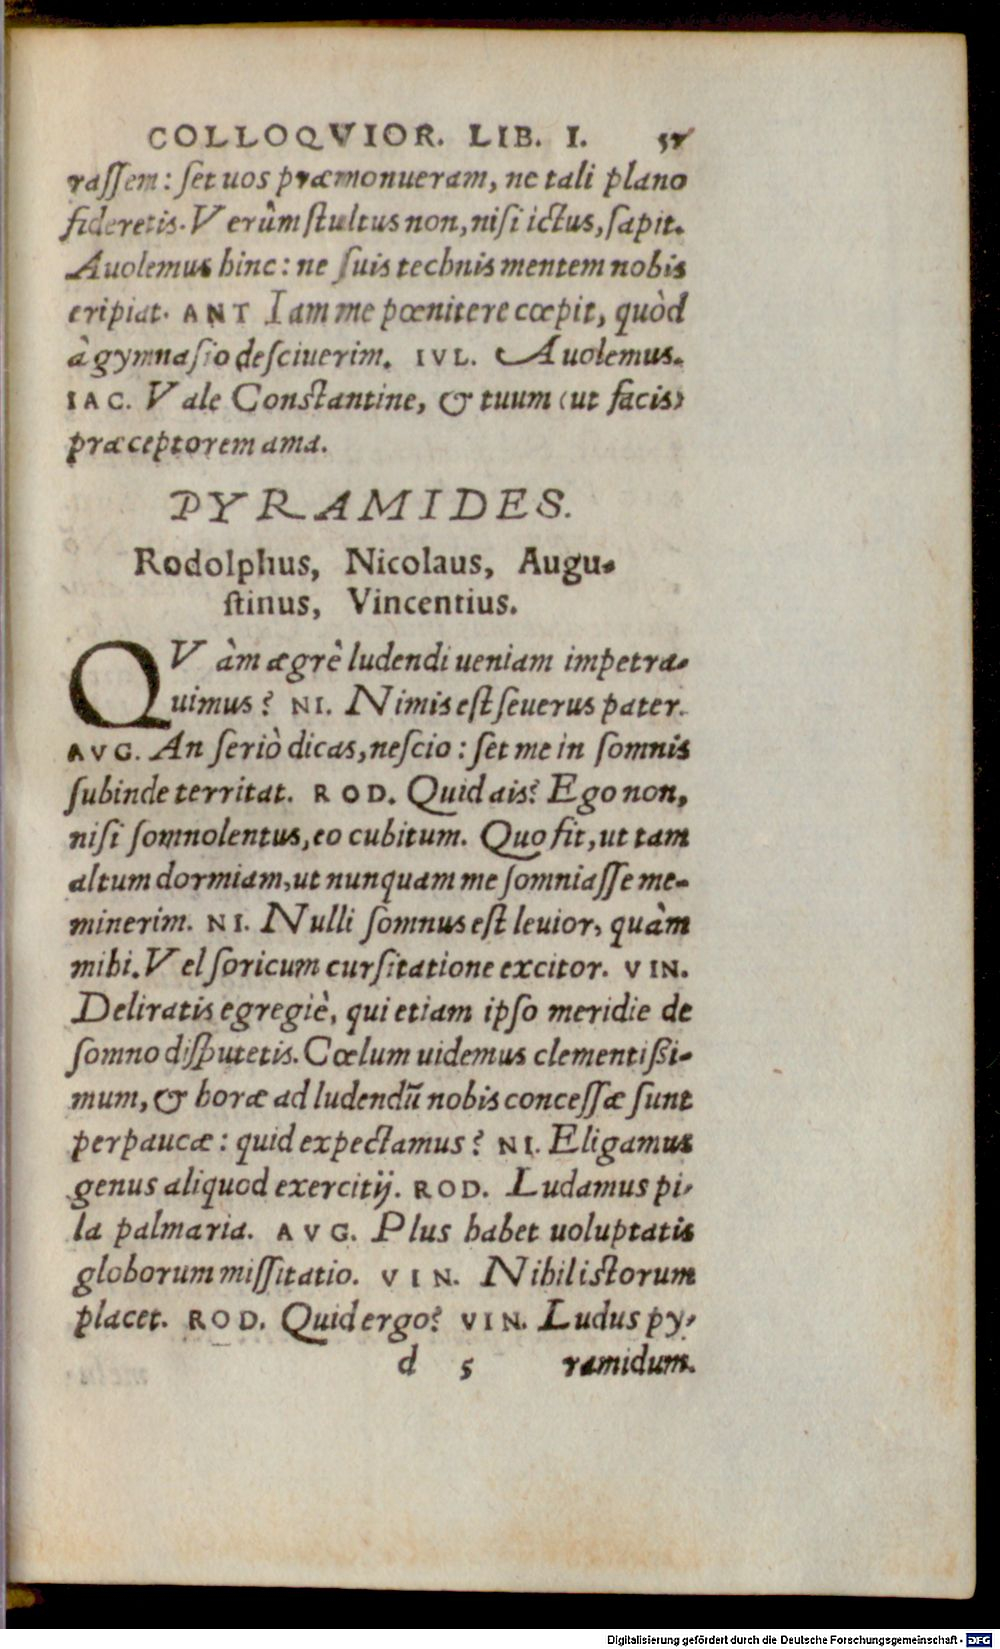 COLLOQVIOR. LIB. I. 57
raſſem: ſet uos præmonueram, ne tali plano
fideretis. Verûm ſtultus non, niſi ictus, ſapit.
Auolemus hinc: ne ſuis technis mentem nobis
eripiat. ANT Iam me pœnitere cœpit, quòd
à gymnaſio deſciuerim. IVL. Auolemus.
IAC. Vale Conſtantine, & tuum (ut facis)
præceptorem ama.
PYRAMIDES.
Rodolphus, Nicolaus, Augu-
ſtinus, Vincentius.
QVàm ægrè ludendi ueniam impetra-
uimus? NI. Nimis eſt ſeuerus pater.
AVG. An ſeriò dicas, neſcio: ſet me in ſomnis
ſubinde territat. ROD. Quid ais? Ego non,
niſi ſomnolentus, eo cubitum. Quo fit, ut tam
altum dormiam, ut nunquam me ſomniaſſe me-
minerim. NI. Nulli ſomnus eſt leuior, quàm
mihi. Vel ſoricum curſitatione excitor. VIN.
Deliratis egregiè, qui etiam ipſo meridie de
ſomno diſputetis. Cœlum uidemus clementißi-
mum, & horæ ad ludendū nobis conceſſæ ſunt
perpaucæ: quid expectamus? NI. Eligamus
genus aliquod exercitij. ROD. Ludamus pi-
la palmaria. AVG. Plus habet uoluptatis
globorum miſſitatio. VIN. Nihil iſtorum
placet. ROD. Quid ergo? VIN. Ludus py-
d 5 ramidum.
Digitalisierung gefördert durch die Deutsche Forschungsgemeinschaft - DFG